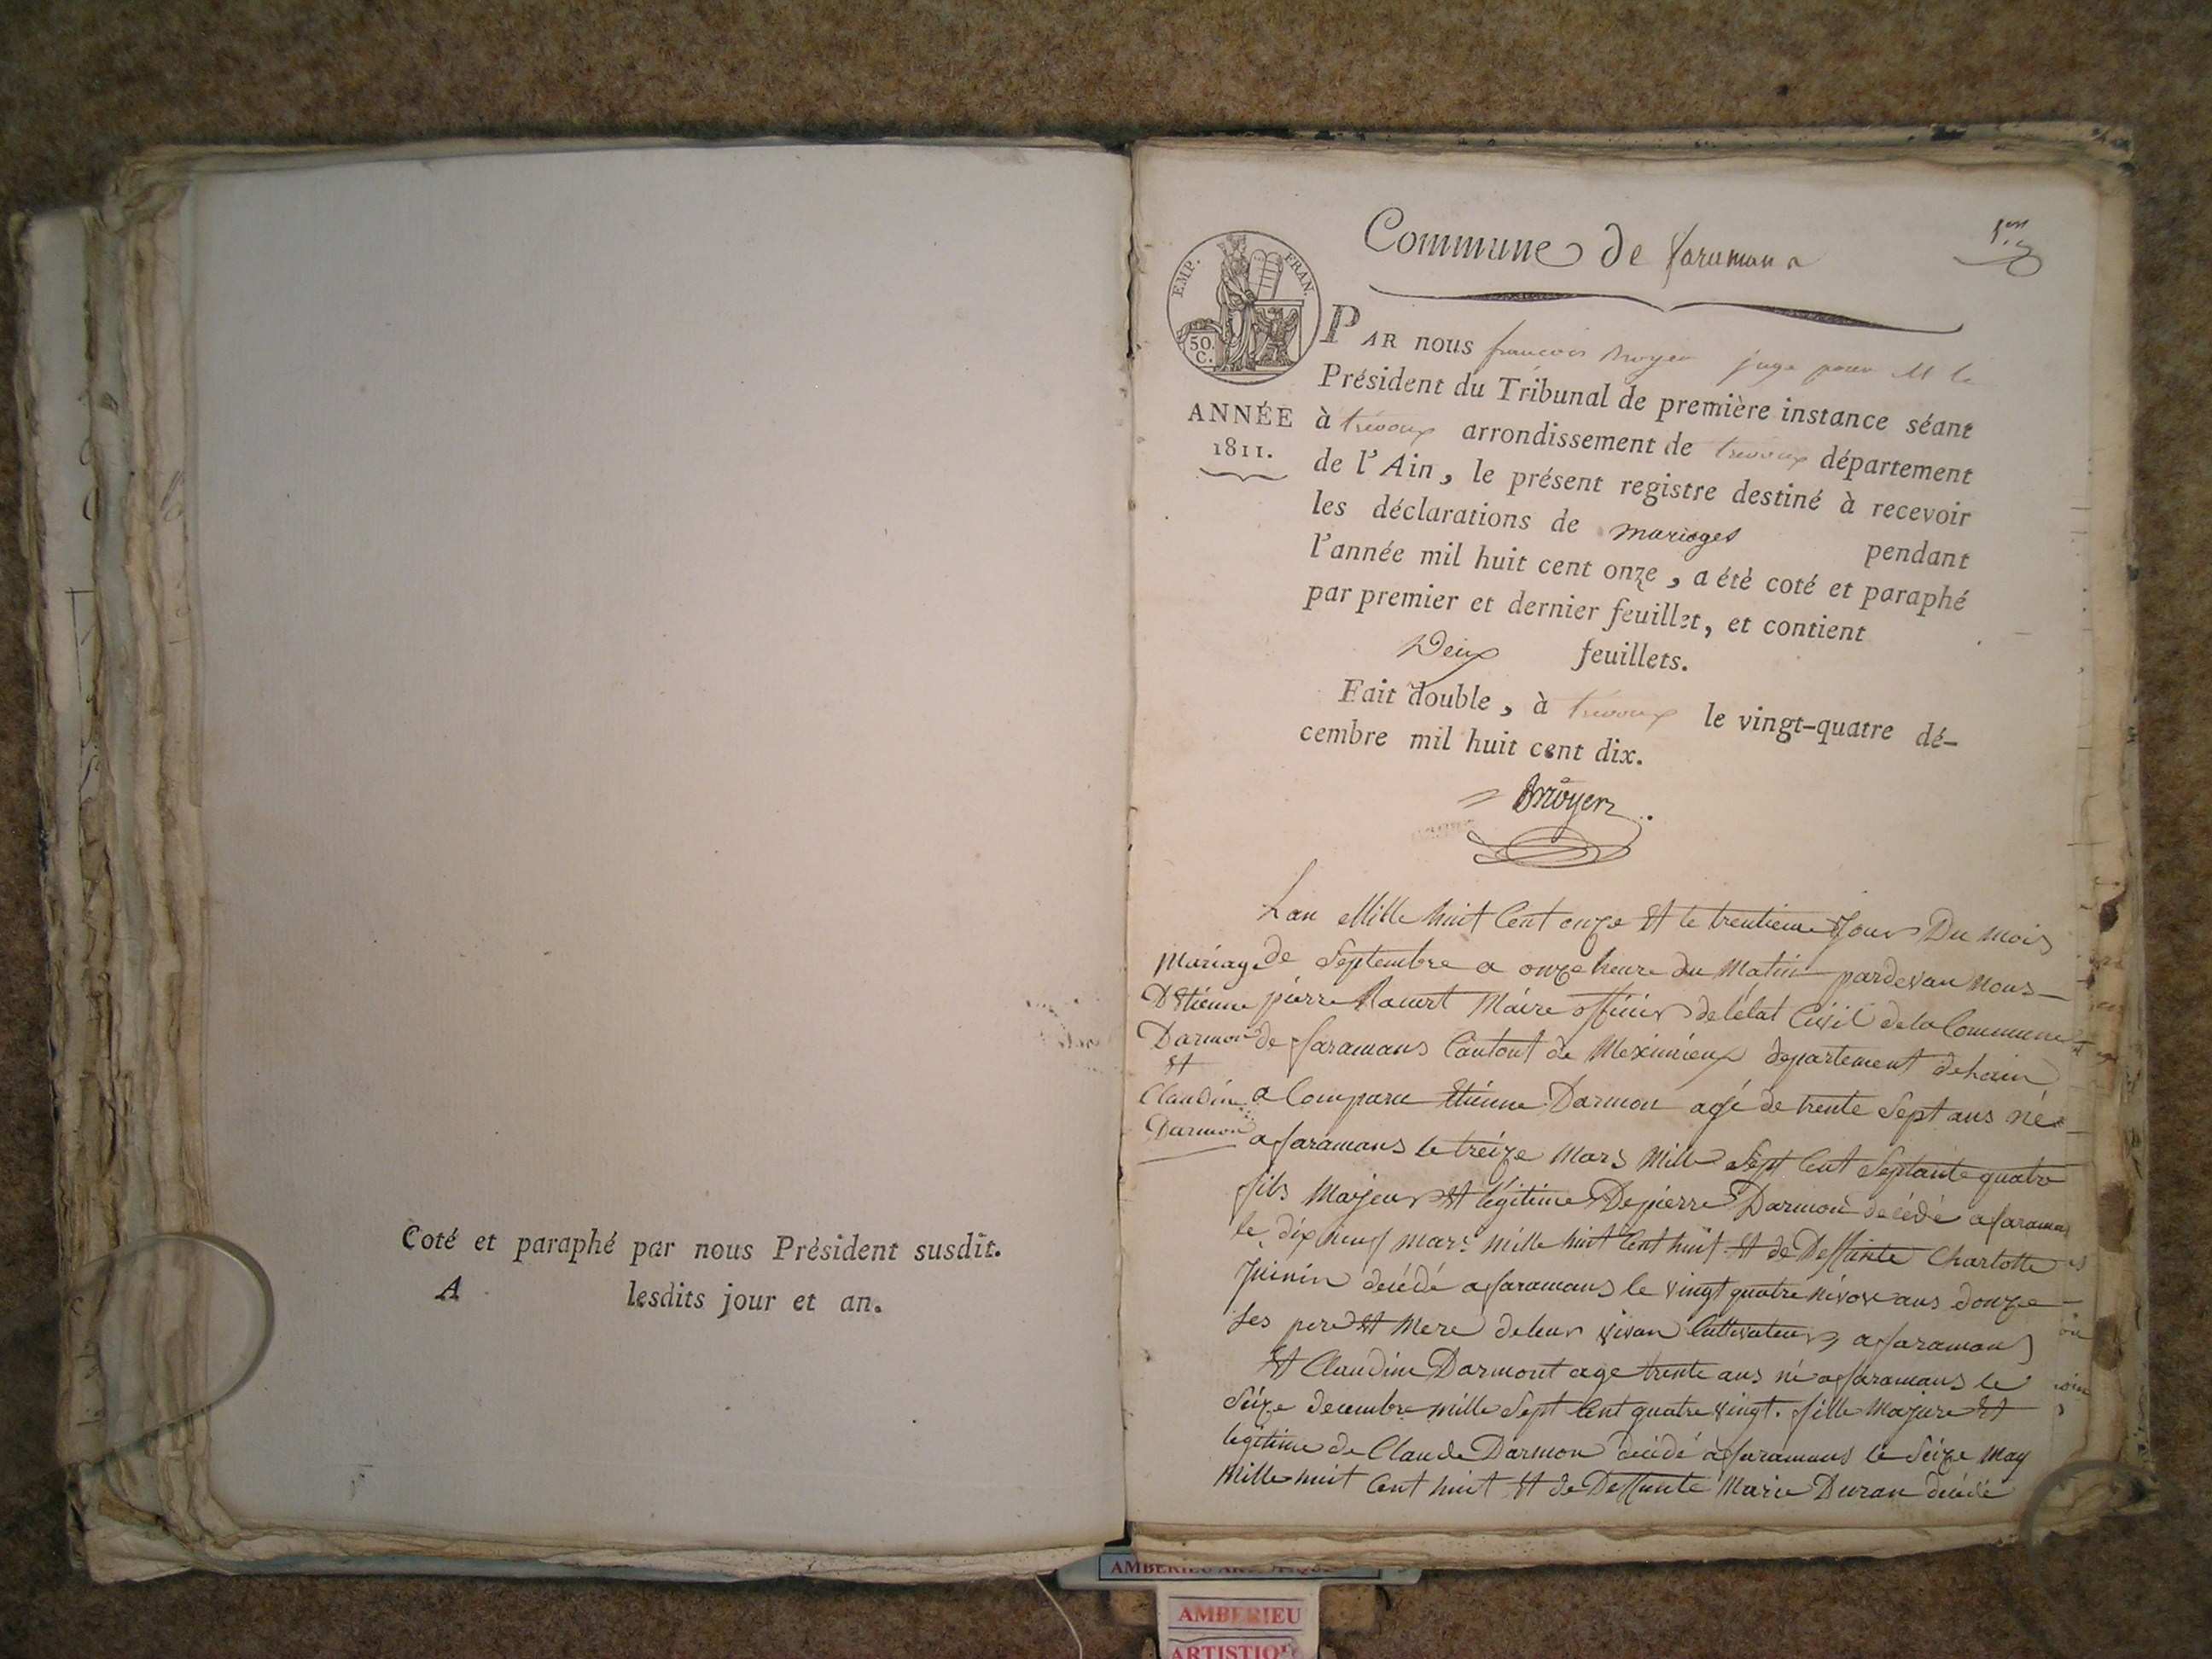 Coté et paraphé par nous Président susdit.
A lesdits jour et an.
Commune de faramans
1er
EMP. FRAN.
50. C.
ANNÉE
1811.
PAR nous françois juge pour M le
Président du Tribunal de première instance séant
à trévoux arrondissement de trévoux département
de l'Ain, le présent registre destiné à recevoir
les déclarations de mariages pendant
l'année mil huit cent onze, a été coté et paraphé
par premier et dernier feuillet, et contient
Deux feuillets.
Fait double, à trévoux le vingt-quatre dé-
cembre mil huit cent dix.
Mariage
D'Etienne
Darmon
Et
Claudine
Darmon
Lan Mille huit Cent onze Et le trentieme Jour Du mois
de Septembre a onze heure du Matin pardevan Nous
pierre Maire officier de létat Civil de la Commune
de faramans Cantont de Meximieux departement de Lain
a Comparu Etienne Darmon agé de trente Sept ans né
a faramans le treize Mars Mille Sept Cent Septante quatre
fils Majeur Et légitime De pierre Darmon décédé a faramans
le dix neuf mars mille huit Cent huit Et de Deffunte Charlotte
décédé a faramans le vingt quatre nivose ans douze
Ses pere Et Mere de leur vivan Cultivateurs a faramans
Et Claudine Darmont age trente ans né a faramans le
Seize decembre mille Sept Cent quatre vingt. fille Majure Et
legitime de Claude Darmon décédé a faramans le Seize May
Mille huit Cent huit Et de Deffunte Marie Duran décédé
AMBERIEU
AMBERIEU
ARTISTIQUE